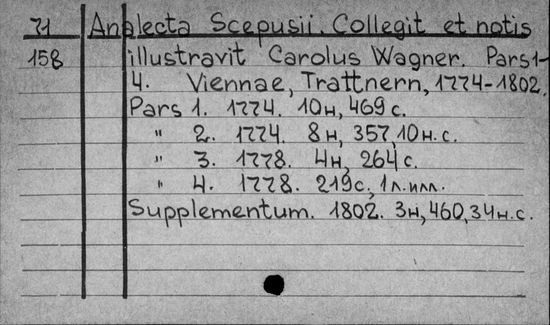 71 Analecta Scepusii. Collegit et notis
158 illustravit Carolus Wagner. Pars 1-
4. Viennae, Trattnern, 1774-1802.
Pars 1. 1774. 10н, 469 с.
" 2. 1774. 8н, 357, 10н. с.
" 3. 1778. 4н, 264 с.
" 4. 1778. 219с, 1л. илл.
Supplementum. 1802. 3н, 460, 34н. с.